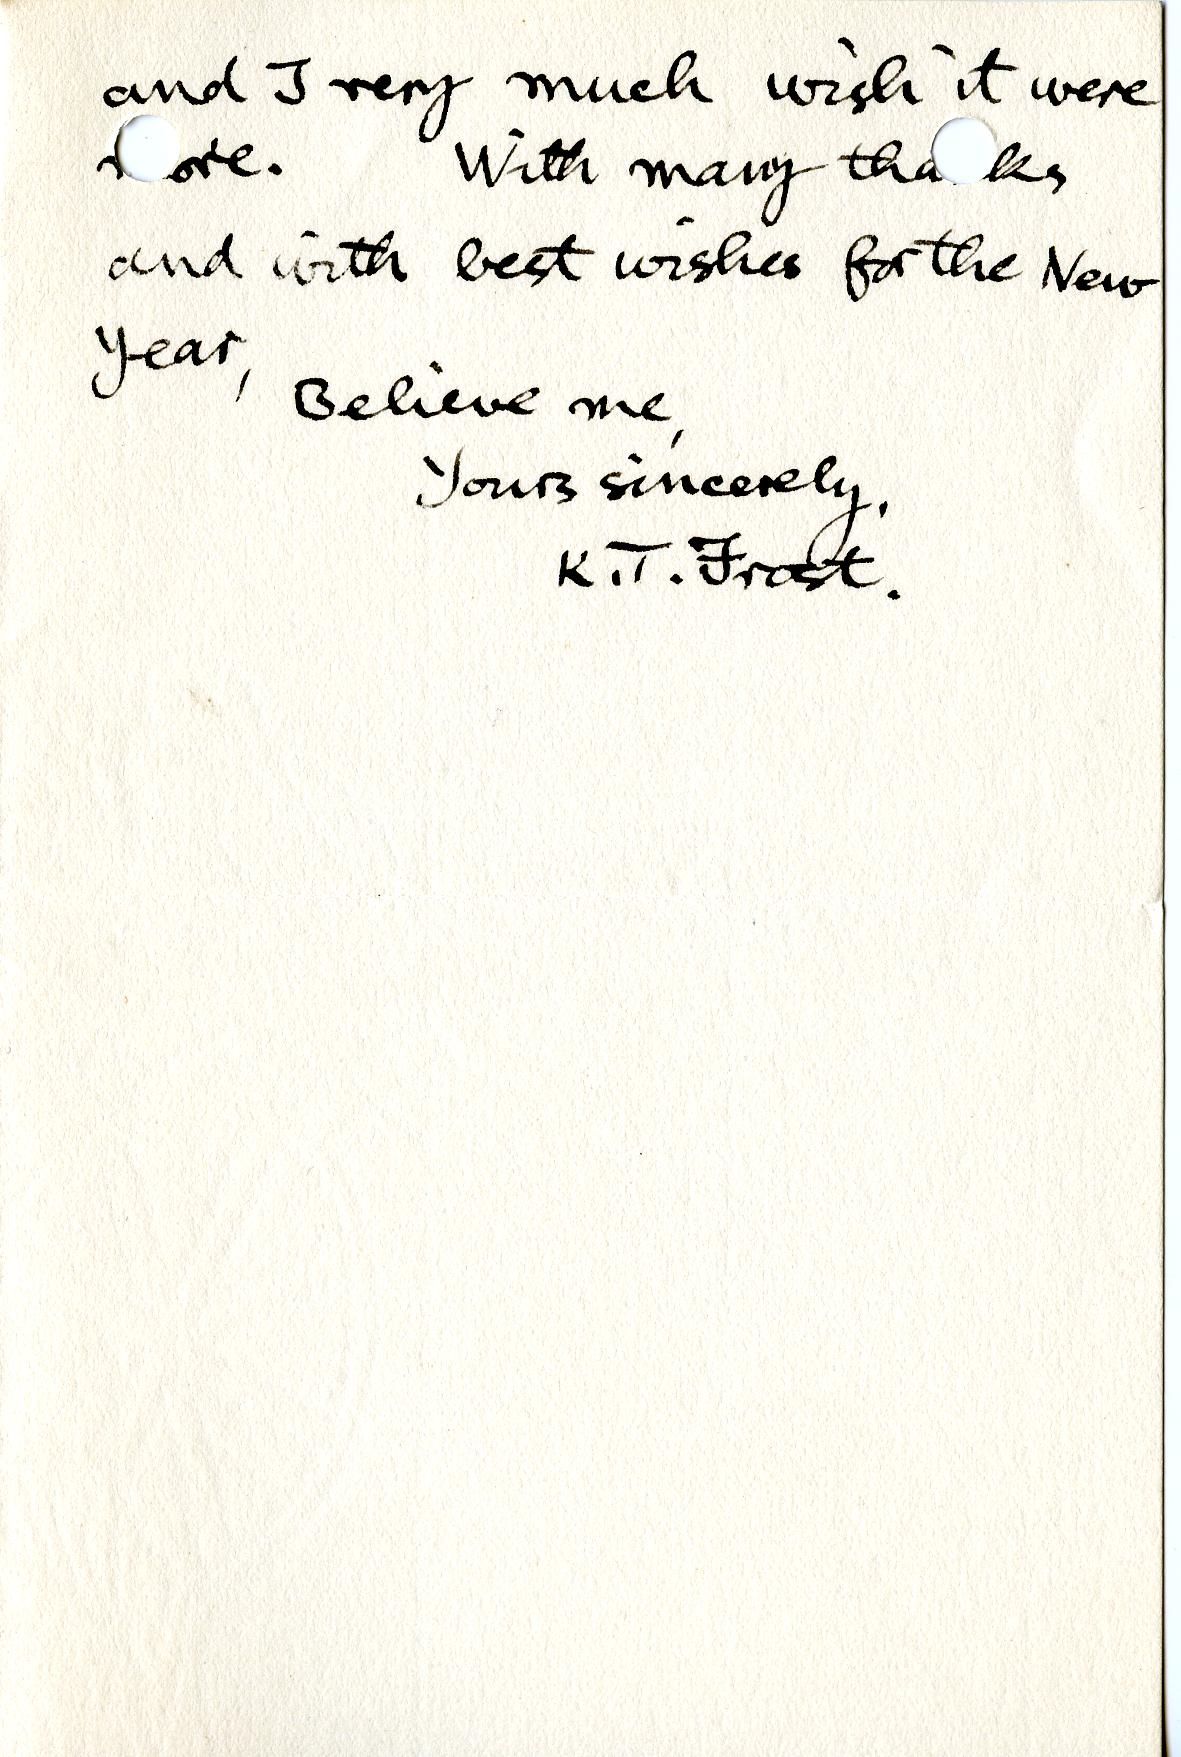 and I very much wish it were
more. With many thanks
and with best wishes for the New
Year,
Believe me,
Yours sincerely,
K.T. Frost.